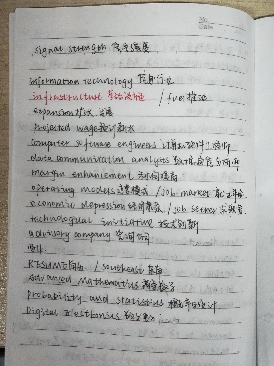 signal strength 信号强度
information technology 信息行业
infrastructure 基础设施 / fuel 推动
expansion 扩张
projected wage 预计薪水
computer software engineers 计算机软件工程师
data communication analysts 数据通信分析师
margin enhancement 利润提高
operating models 运营模式 / job market
economic depression 经济萧条 / job seeker 求职者
technological initiative 技术创新
advisory company 咨询公司
RESUME 简历 / southeast 东南
Advanced Mathematics 高等数学
Probability and Statistics 概率与统计
Digital Electronics 数字电子